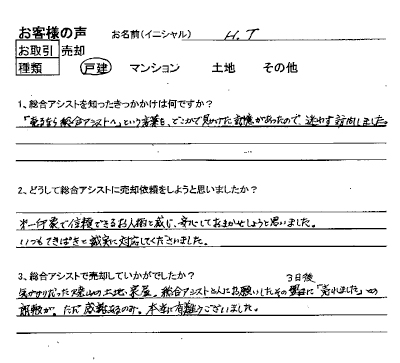 お客様の声 お名前(イニシャル) H.T
お取引 売却
種類 戸建 マンション 土地 その他
1、総合アシストを知ったきっかけは何ですか?
「売るなら総合アシストへ」という言葉を、どこかで見かけた記憶があったので、迷わず訪問しました
2、どうして総合アシストに売却依頼をしようと思いましたか?
第一印象で信頼できるお人柄と感じ、安心しておまかせしようと思いました。
いつもてきぱきと誠実に対応してくださいました。
3、総合アシストで売却していかがでしたか? 3日後
気がかりだった 山の土地、家屋。総合アシストさんにお願いしたその に「売れました」との
ただ感謝あるのみ。本当に有難うございました。